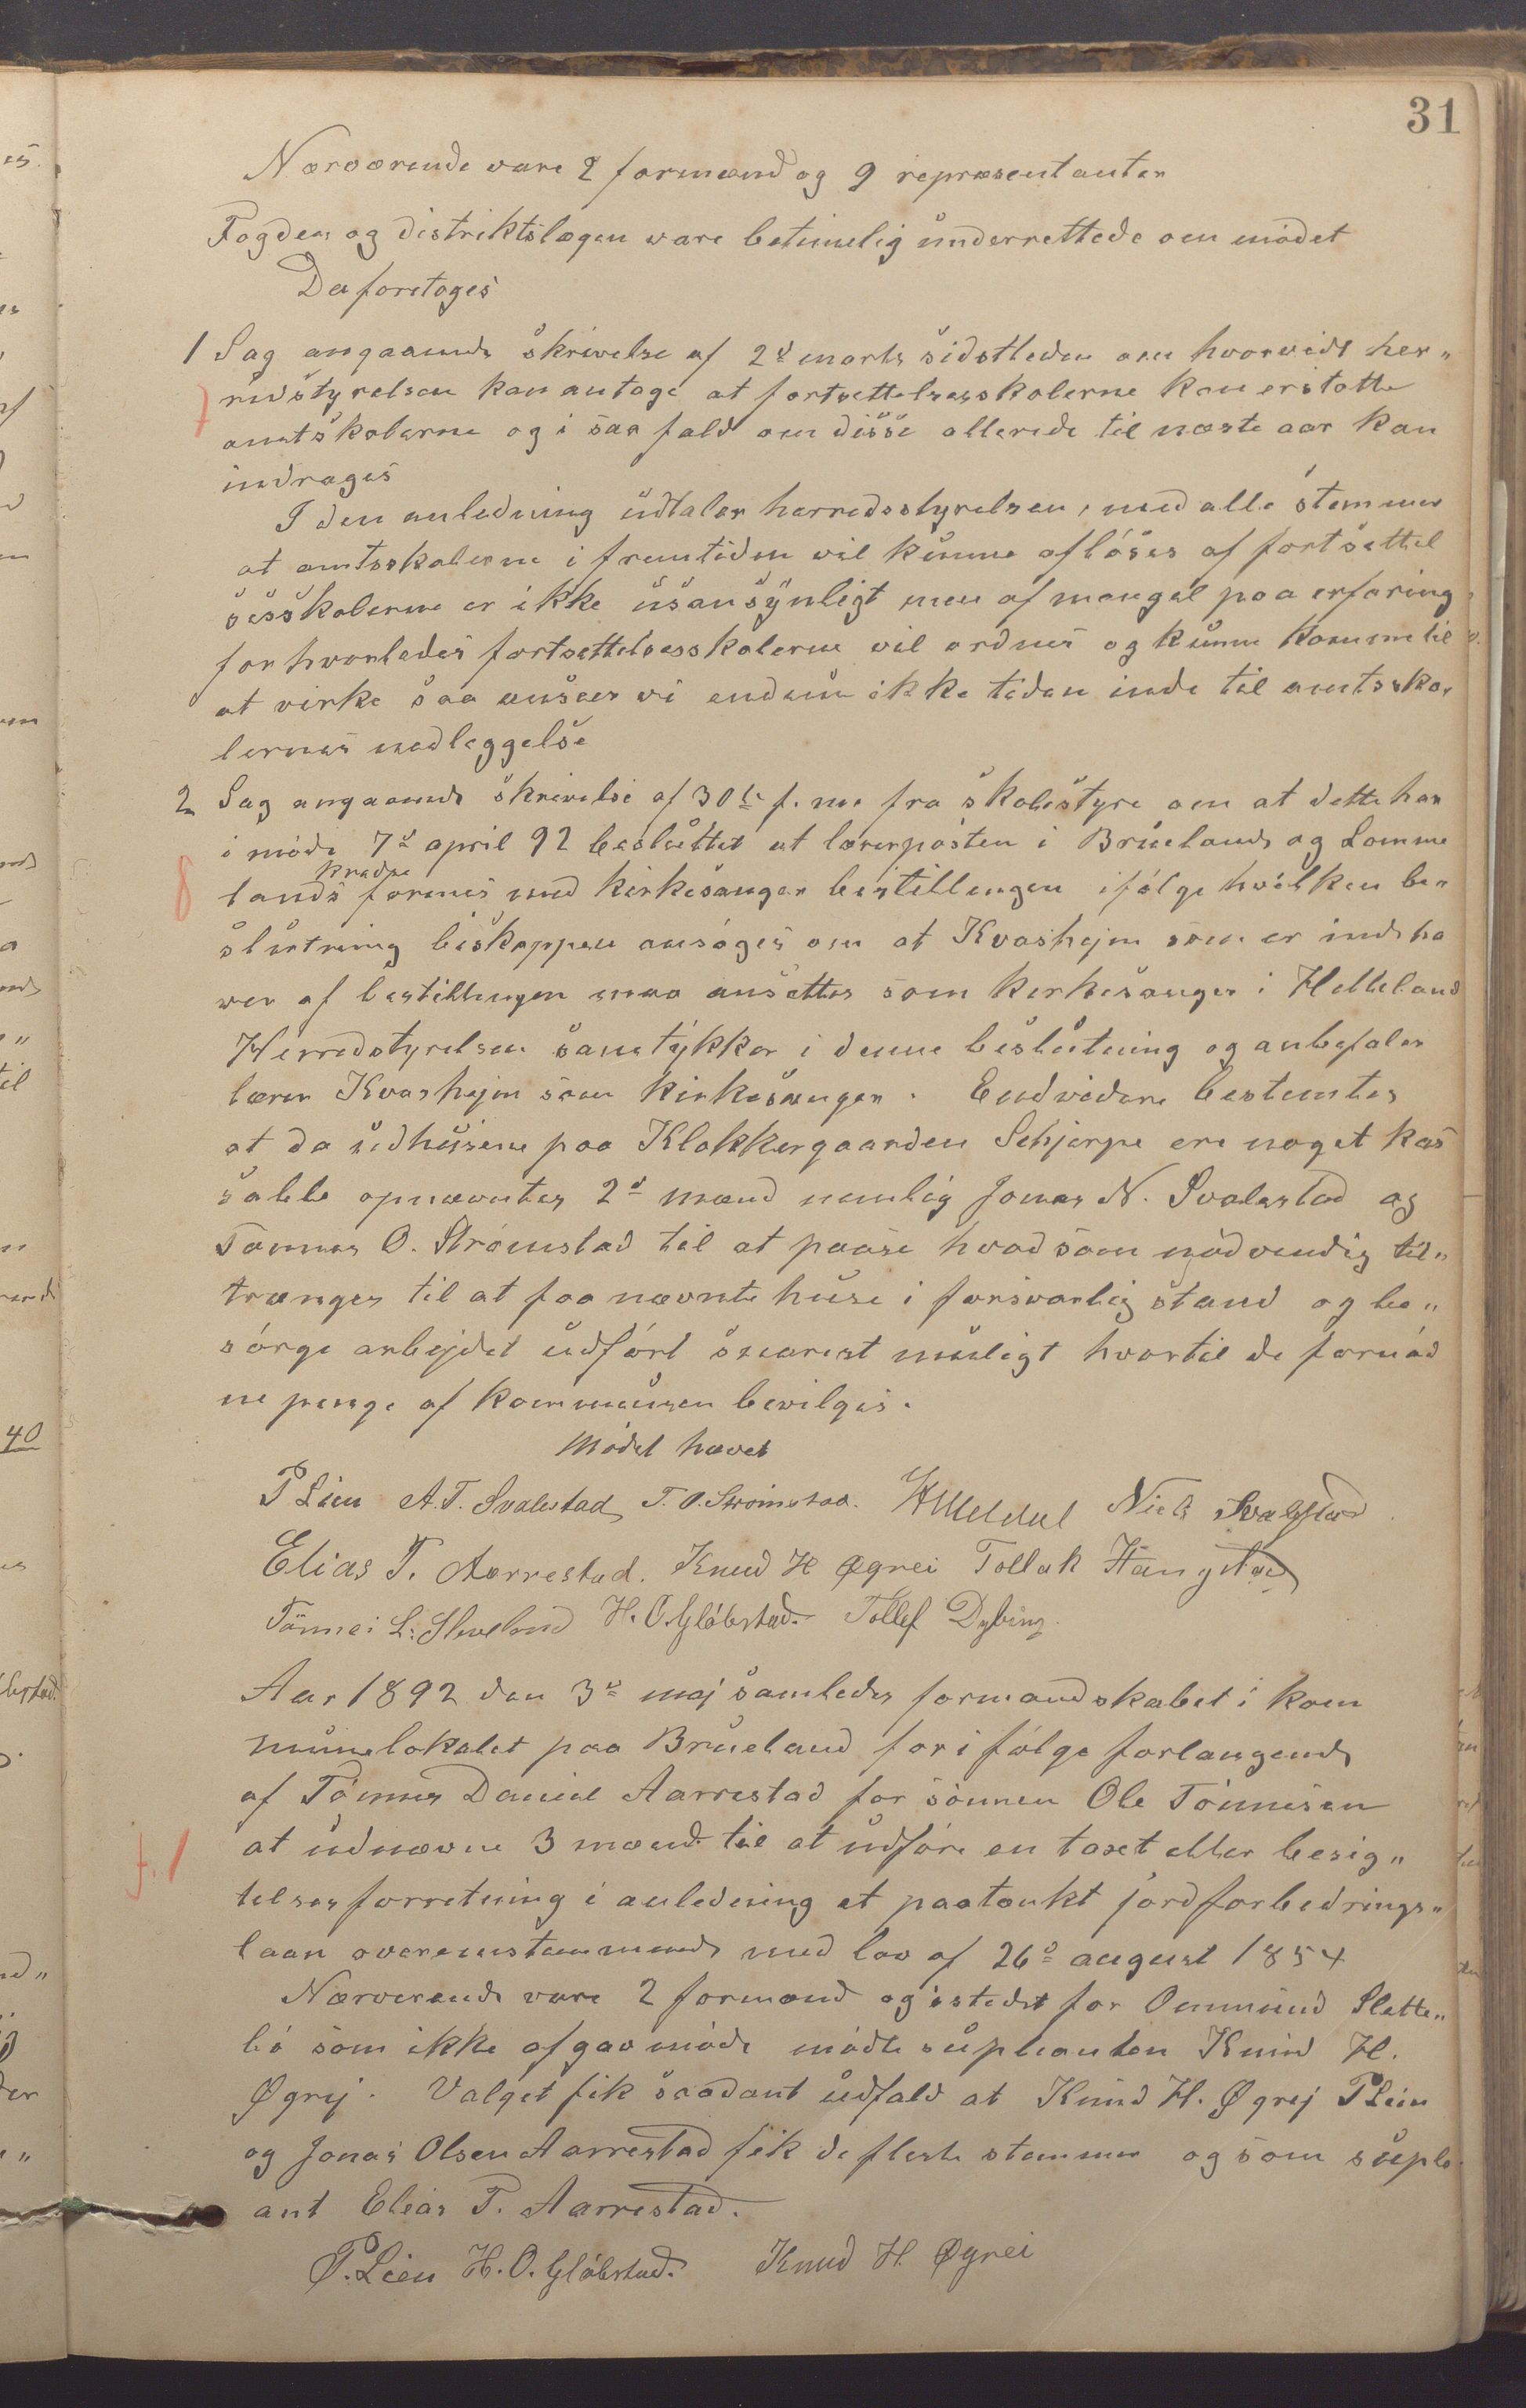 31
Nærværende vare 2 formænd og 9 repræsentanter
Fogden og distriktslægen vare betimelig underrettede om mödet
Da foretoges
1 Sag angaaende skrivelse af 2d marts sidstleden om hvorvidt her„
redstyrelsen kan antage at fortsettelsesskolerne kan erstatte
7
amtskolerne og i saa fald om disse allerede til næste aar kan
indrages
I den anledning udtaler herredsstyrelsen, med alle stemmer
at amtsskolerne i fremtiden vil kunne aflöses af fortsettel
sesskolerne er ikke usansynligt men af mangel paa erfaring
for hvorledes fortsettelsesskolerne vil ordnes og kunne komme til
at virke saa ansees vi endnu ikke tiden inde til amtssko„
lernes nedleggelse
2 Sag angaaende skrivelse af 30te f. m. fra skolestyre om at dette har
i möde 7d april 92 besluttet at lærerposten i Brueland og Lomme
kredse
8 lands forenes med kirkesanger bestillingen ifölge hvilken be„
slutning biskoppen ansöges om at Kvashejm som er indeha
ver af bestillingen maa ansettes som kirkesanger i Helleland
Herredstyrelsen samtykker i denne beslutning og anbefaler
lærer Kvashejm som kirkesanger. Endvidere bestemtes
at da udhusene paa Klokkergaarden Schjerpe ere noget kas
sable opnævntes 2d mænd nemlig Jonas N. Svalestad og
Tönnes O. Strömstad til at paase hvad som nödvendig til„
trænges til at faa nævnte huse i forsvarlig stand og be„
sörge arbejdet udfört snarest muligt hvortil de fornöd
ne penge af kommunen bevilges.
Mödet hævet
P Lien A. T. Svalestad T. O. Strömstad. Niels Svalestad
Elias T. Aarrestad. Knud H Øgrei Tollak Haugstad
Tönnes L. Sleveland H. O. Glöbstad. Tollef Dybing.
Aar 1892 den 3d maj samledes formandskabet i kom
munelokalet paa Brueland for i fölge forlangende
af Tönnes Daniel Aarrestad for sönnen Ole Tönnesen
f. 1
at udnævne 3 mænd til at udföre en taxt eller besig„
telsesforretning i anledning et paatænkt jordforbedrings„
laan overensstemmende med lov af 26d august 1854
Nærverende vare 2 formænd og istedet for Ommund Slette„
bö som ikke afgav möde mödte supleanten Knud H.
Øgrej. Valget fik saadant udfald at Knud H. Øgrej P Lien
og Jonas Olsen Aarrestad fik de fleste stemmer og som suple
ant Elias T. Aarrestad.
P. Lien H. O. Glöbstad. Knud H. Øgrei